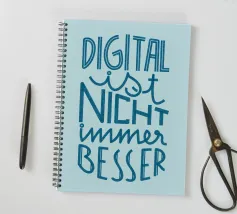 DIGITAL
ist
NICHT
immer
BESSER